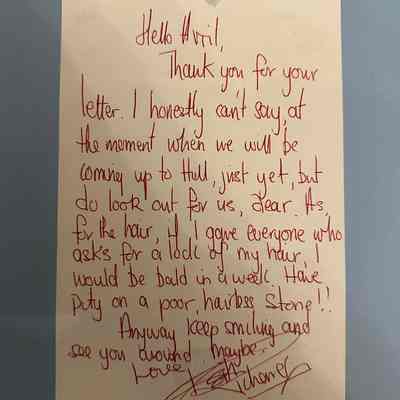 Hello Avril,
Thank you for your
letter. I honestly can't say, at
the moment when we will be
coming up to Hull, just yet, but
do look out for us, dear. As
for the hair, if I gave everyone who
asks for a lock of my hair, I
would be bald in a week. Have
Pity on a poor, hairless Stone!!
Anyway keep smiling and
see you around maybe.
Love